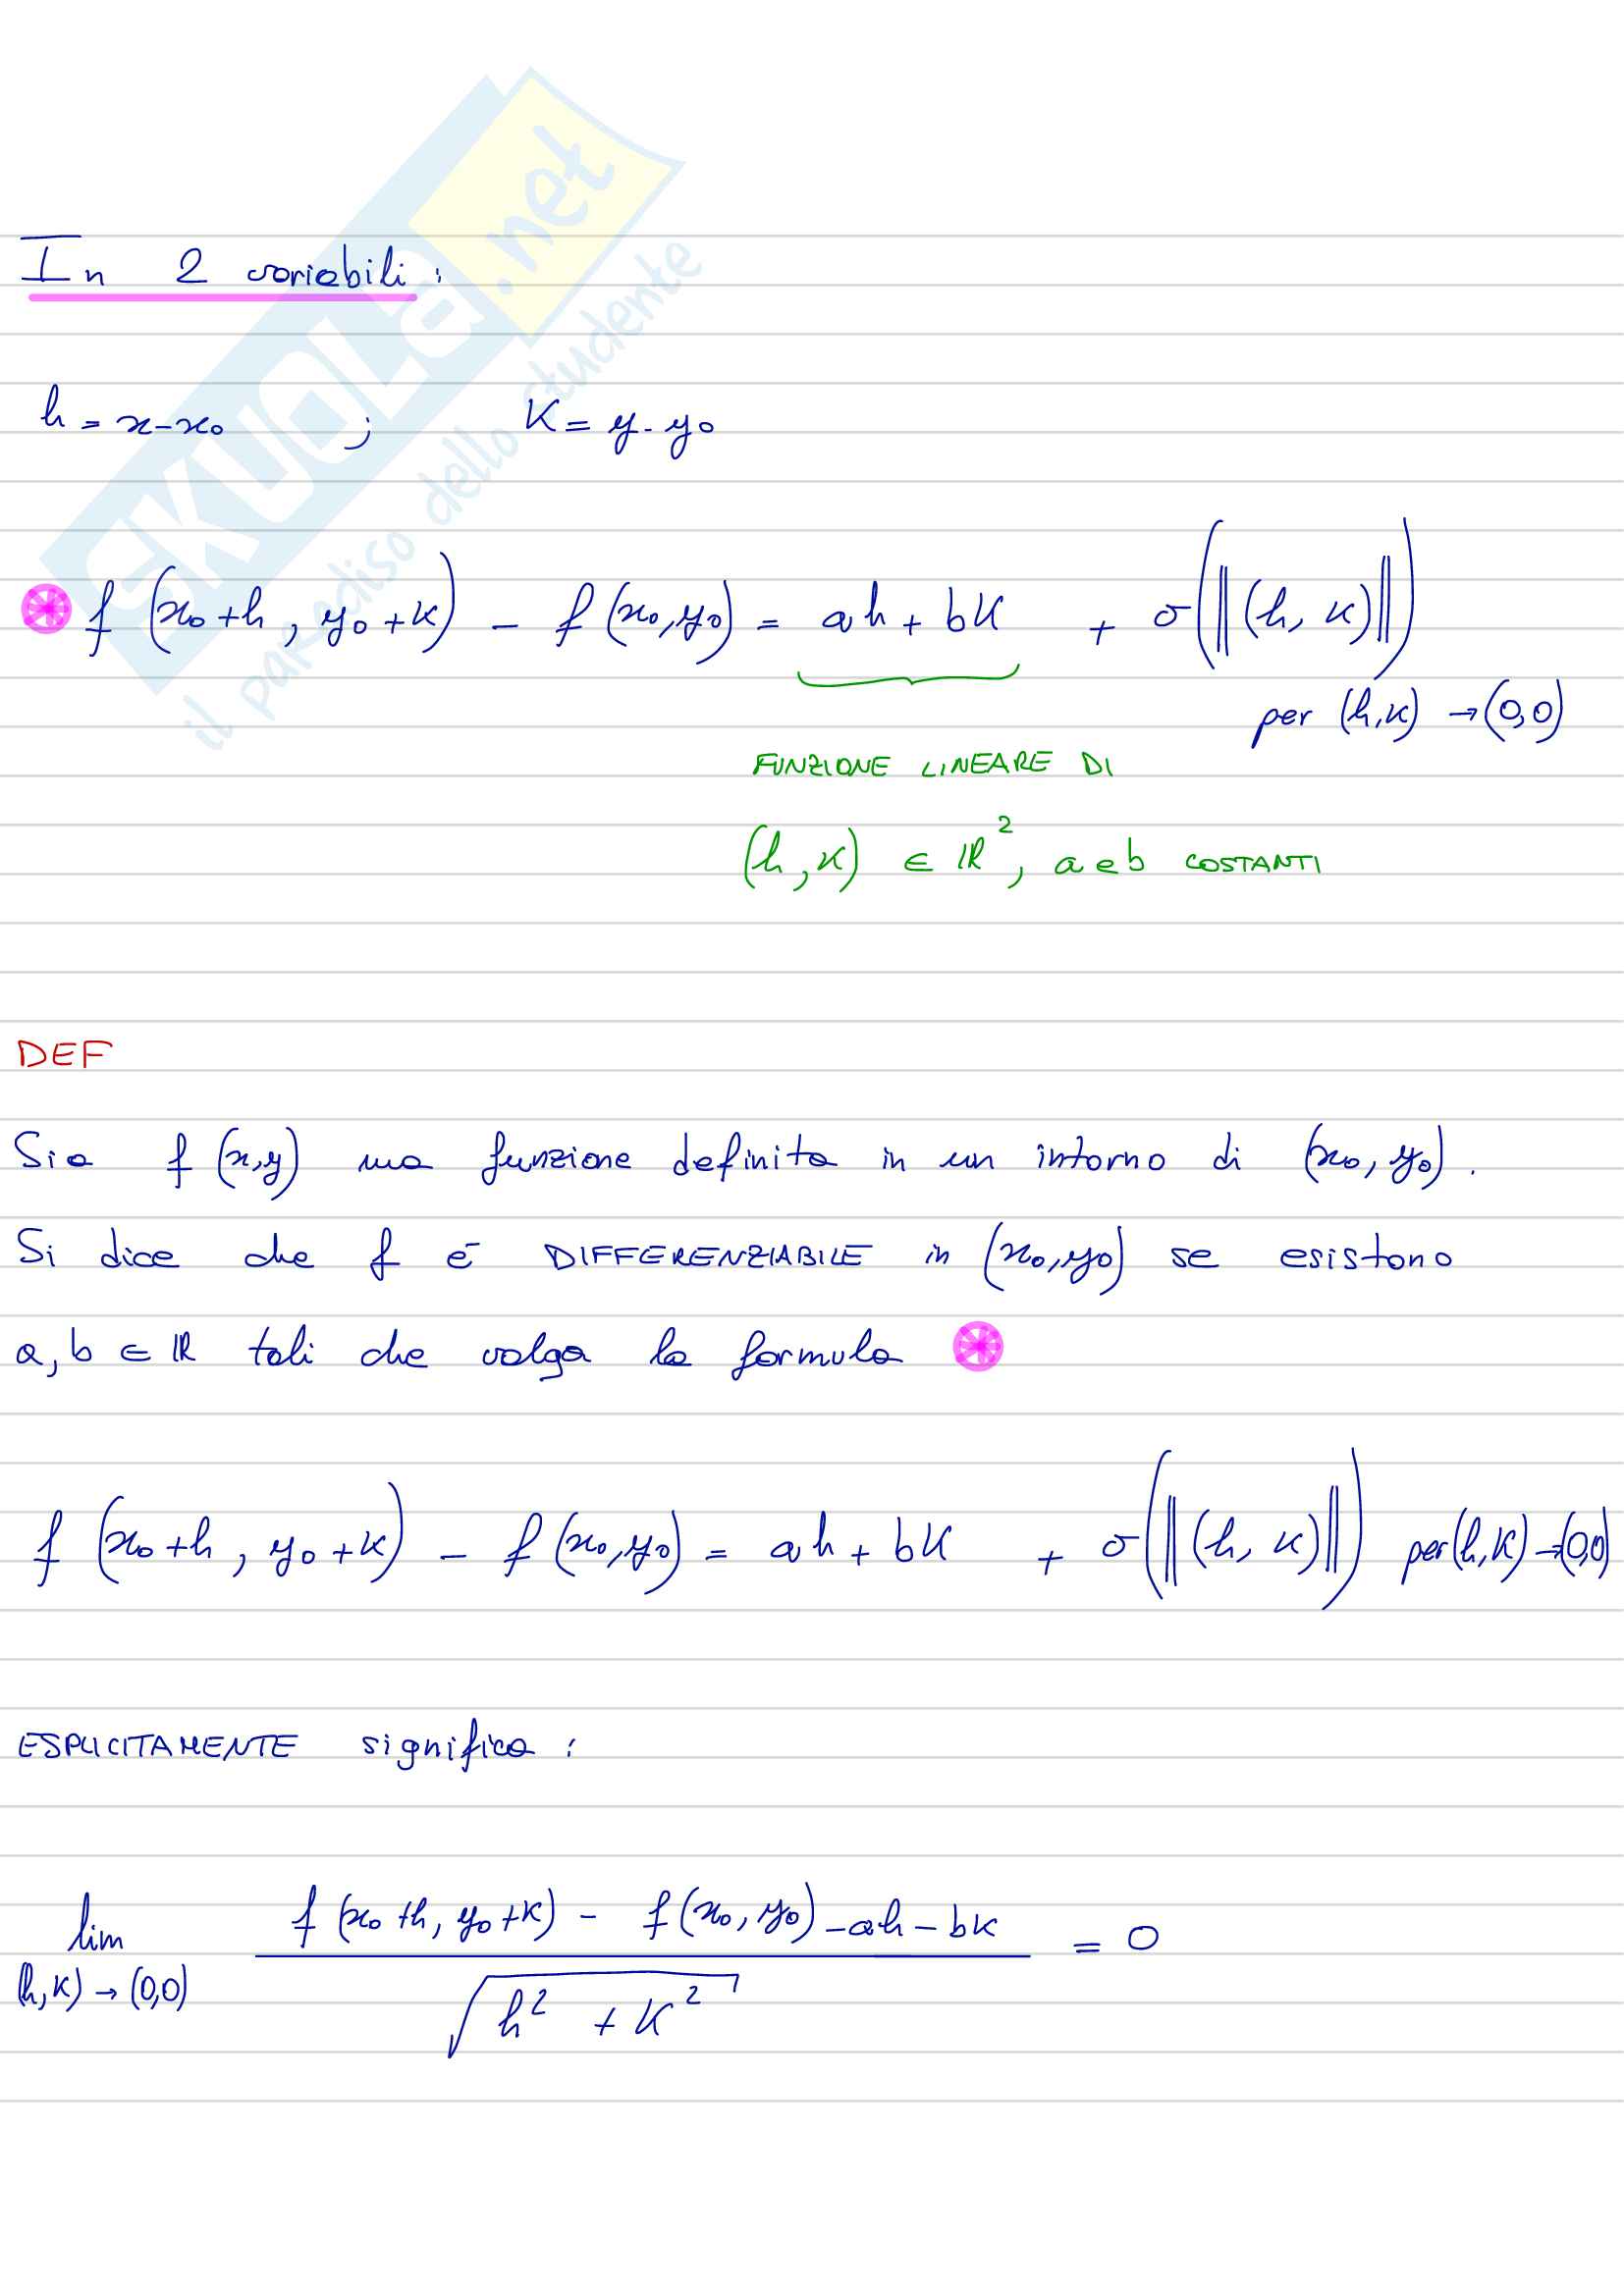 SKUOLA.net
il paradiso dello studente
In 2 variabili:
h = x-x₀ ; K = y-y₀
f (x₀+h, y₀+k) - f(x₀,y₀) = ah + bK + o(‖(h, k)‖)
per (h,k) → (0,0)
FUNZIONE LINEARE DI
(h,k) ∈ ℝ², a e b COSTANTI
DEF
Sia f (x,y) una funzione definita in un intorno di (x₀, y₀).
Si dice che f è DIFFERENZIABILE in (x₀,y₀) se esistono
a, b ∈ ℝ tali che valga la formula
f (x₀+h, y₀+k) - f(x₀,y₀) = ah + bK + o(‖(h, k)‖) per (h,k) → (0,0)
ESPLICITAMENTE significa:
lim (h,k) → (0,0) f(x₀+h, y₀+k) - f(x₀,y₀) - ah - bk / √(h² + k²) = 0